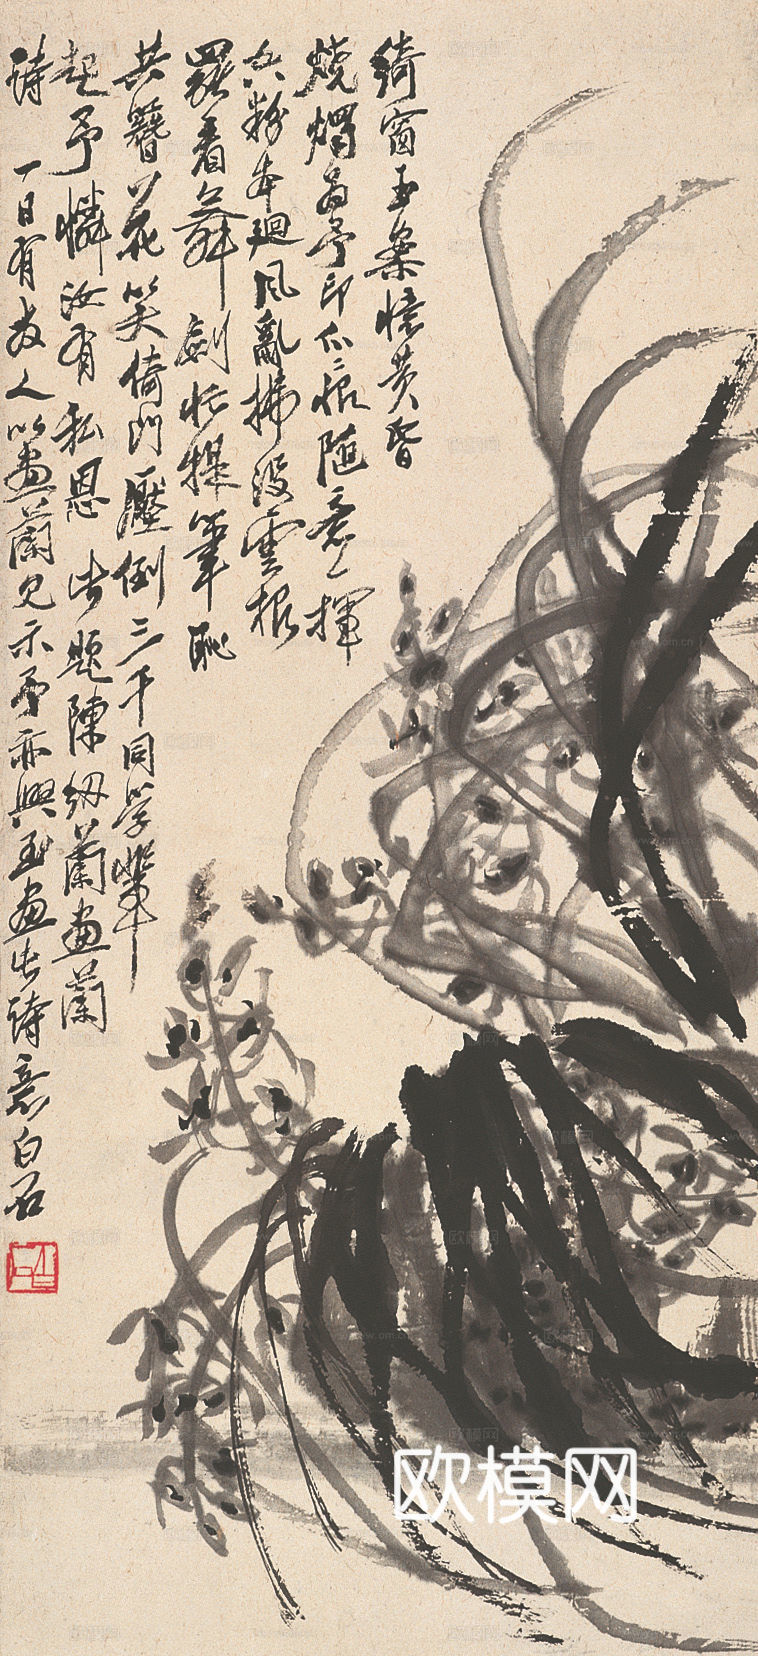 綺窗玉案憶黄昏
燒燭為予印爪痕隨意一揮
空粉本迴風亂拂没雲根
罷看舞劍忙提筆恥
共簪花笑倚門壓倒三千同學輩
起予憐汝有私恩 此題陳紉蘭畫蘭
詩 一日有友人以畫蘭見示予亦興至畫此詩意白石
欧模网